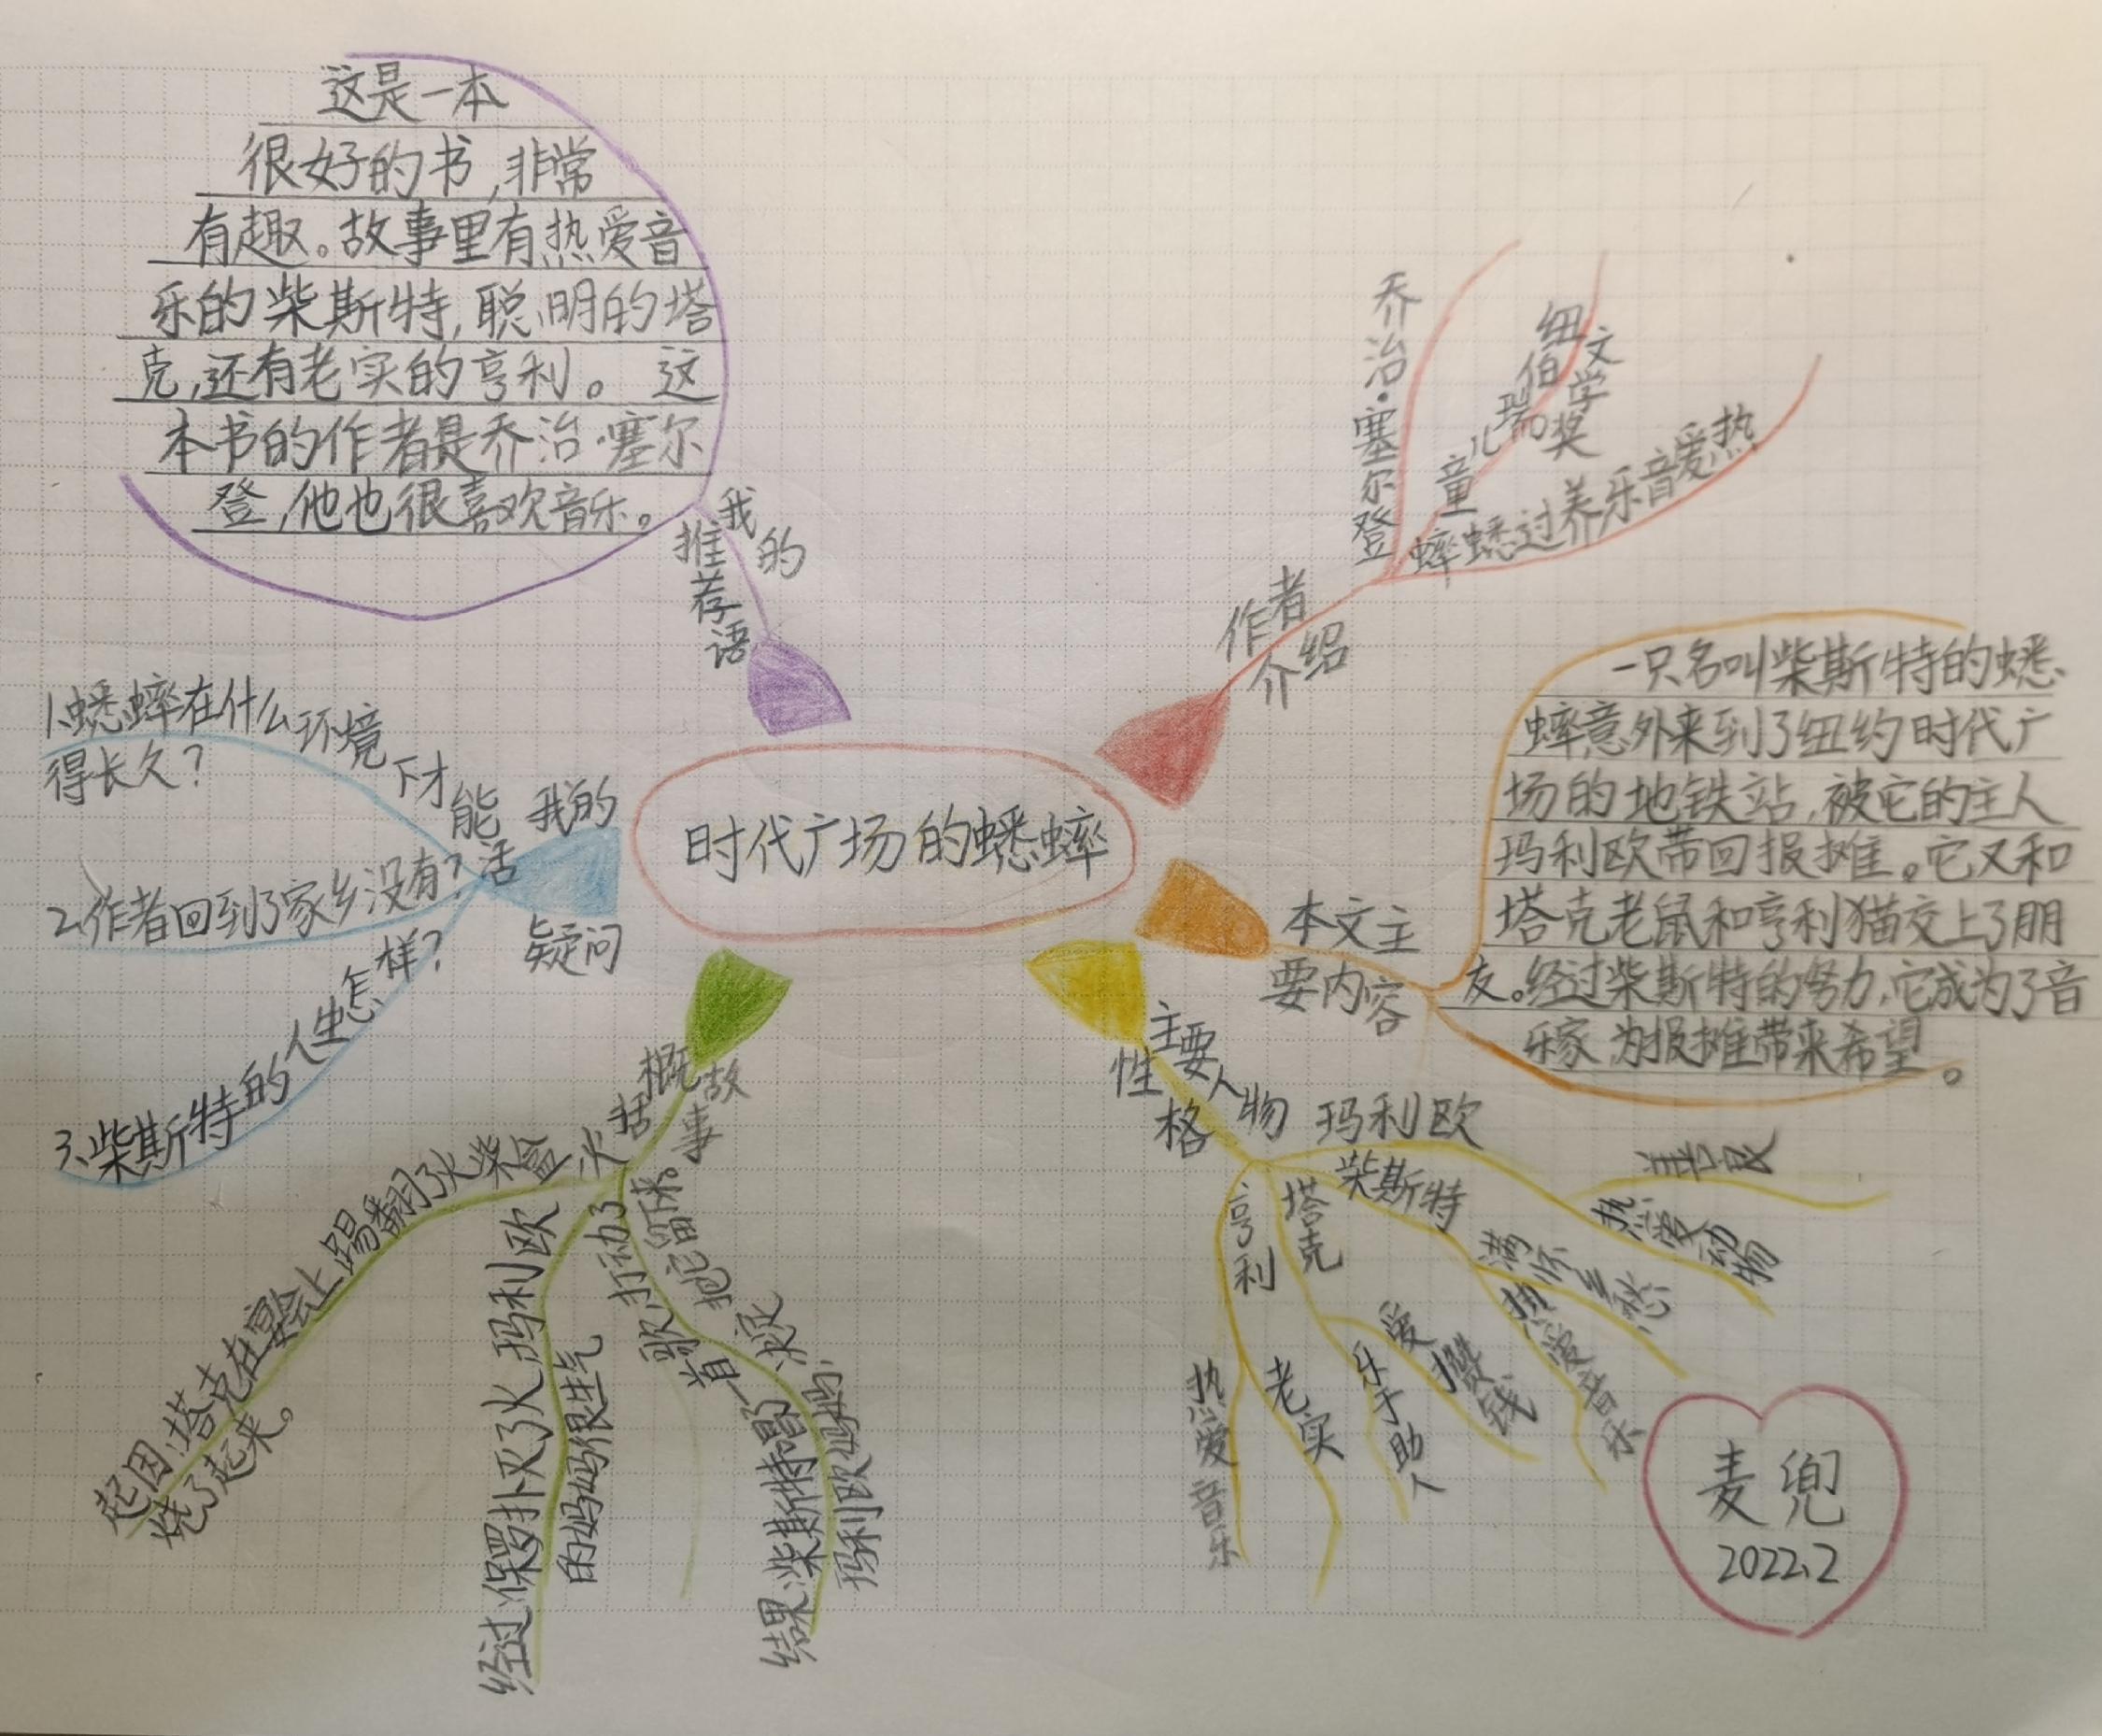 时代广场的蟋蟀
我的
推荐语
这是一本
很好的书,非常
有趣。故事里有热爱音
乐的柴斯特,聪明的塔
克,还有老实的亨利。这
本书的作者是乔治·塞尔
登,他也很喜欢音乐。
作者
介绍
乔治·塞尔登
纽伯瑞儿童
文学奖
热爱音乐养过蟋蟀
本文主
要内容
一只名叫柴斯特的蟋
蟀意外来到了纽约时代广
场的地铁站,被它的主人
玛利欧带回报摊。它又和
塔克老鼠和亨利猫交上了朋
友。经过柴斯特的努力,它成为了音
乐家,为报摊带来希望。
主要人物
性格
玛利欧
善良
热爱动物
柴斯特
满怀乡愁
热爱音乐
塔克
爱攒钱
乐于助人
亨利
老实
热爱音乐
概括
故事
起因:塔克在宴会上踢翻了火柴盒,火
烧了起来。
经过:保罗扑灭了火,玛利欧
的妈妈很生气
结果:柴斯特唱一首歌,打动了
玛利欧妈妈,决定把它留下来。
我的
疑问
1、蟋蟀在什么环境下才能活
得长久?
2、作者回到了家乡没有?
3、柴斯特的人生怎样?
麦兜
2022、2